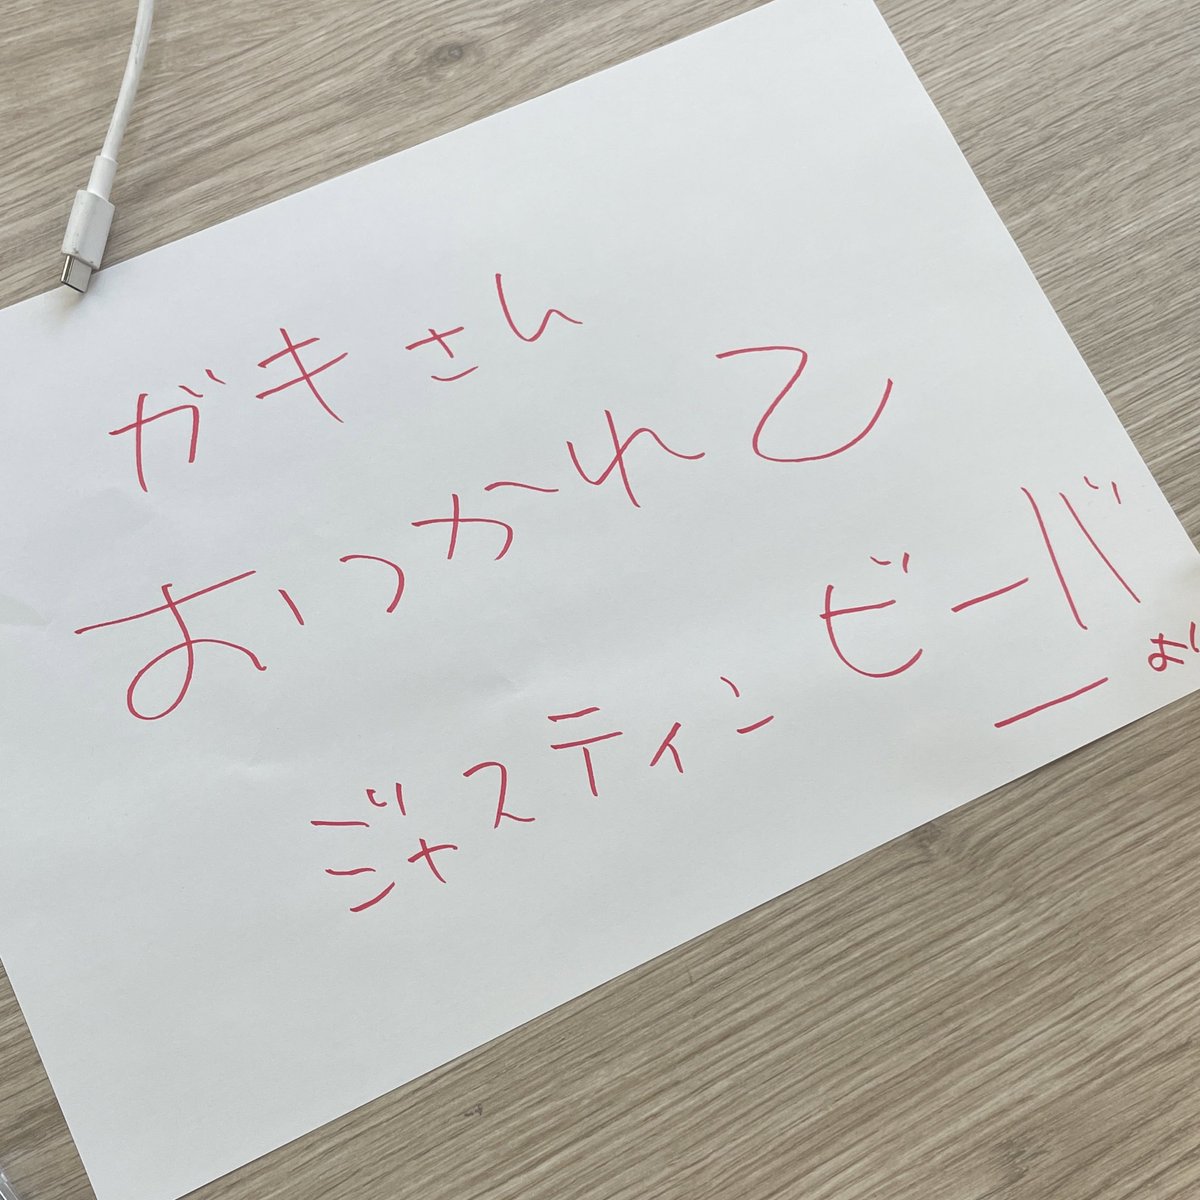 ガキさん
おつかれ乙
ジャスティンビーバー